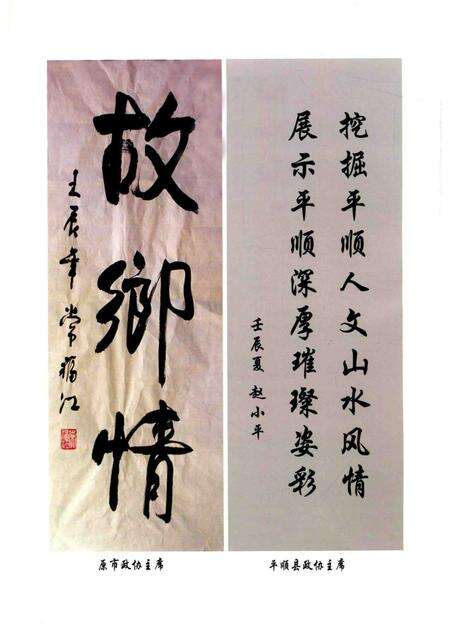 挖掘平顺人文山水风情
展示平顺深厚璀璨姿彩
壬辰夏 赵小平
平顺县政协主席
故鄉情
壬辰年 常福江
原市政协主席